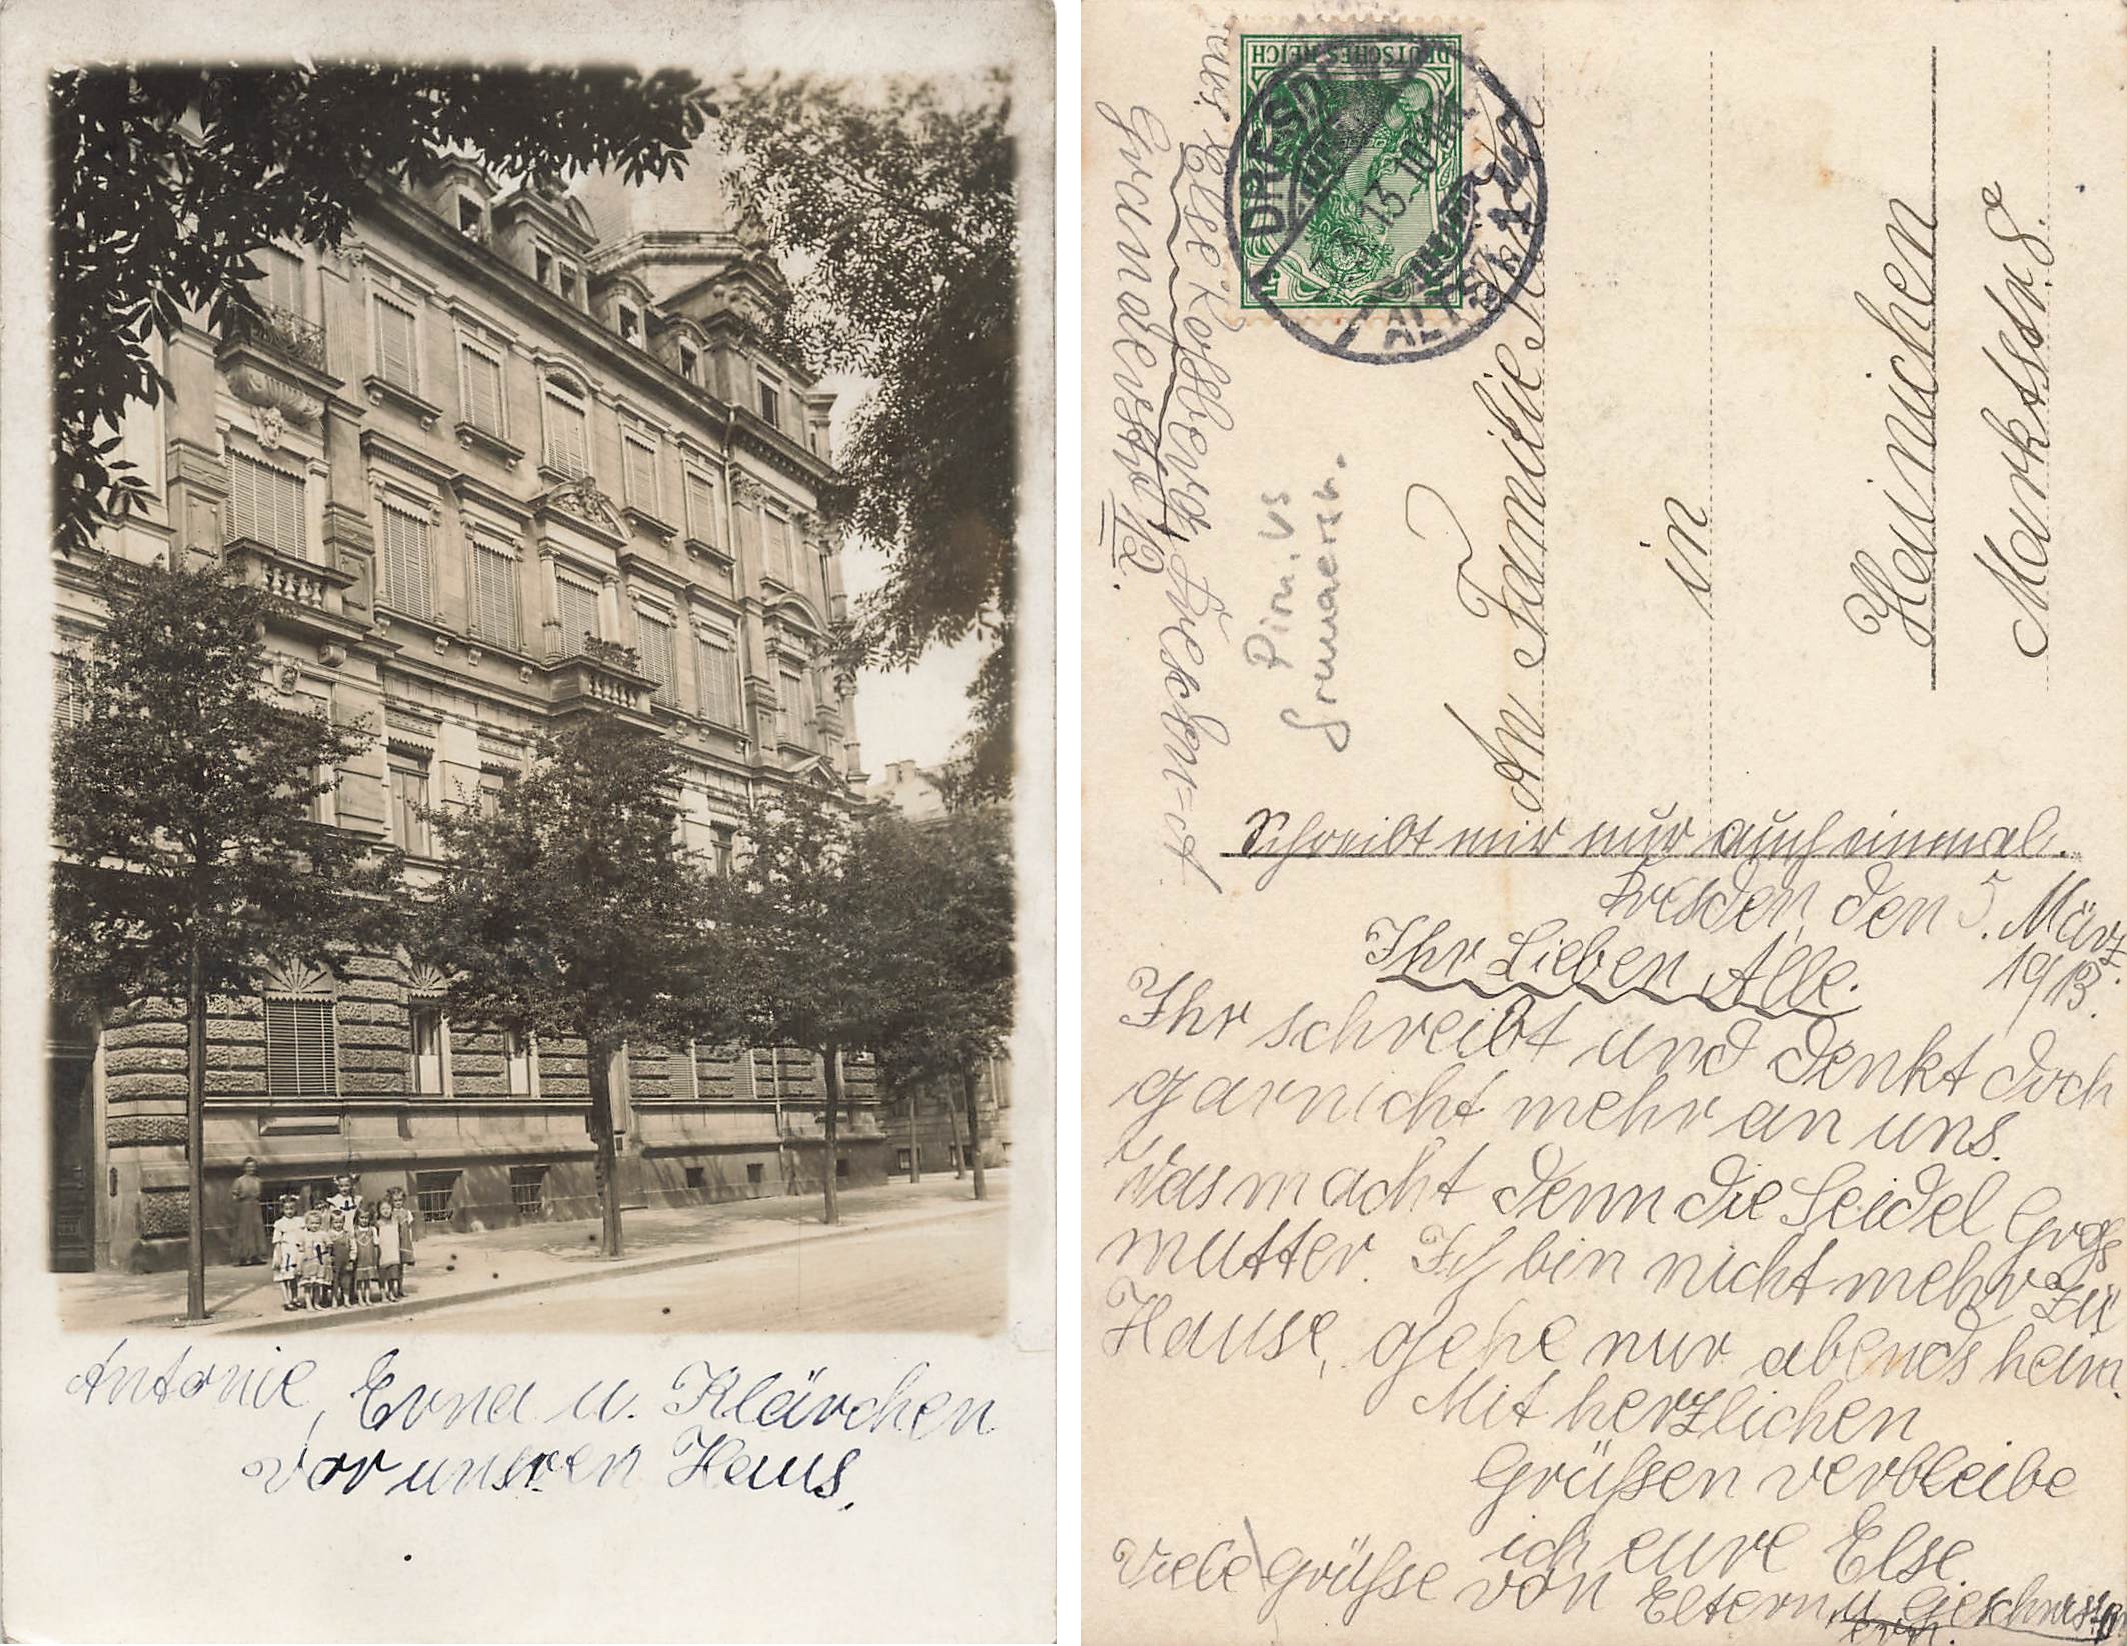 Antonie, Erna u. Klärchen
vor unsren Haus.
DEUTSCHES REICH
DRESDEN
ALTST.
Abs. Else Rossberg, Dresden-A
Grunaerstr 12.
Pirn. vs
Grunaerstr.
An Familie
in
Hainichen
Marktstr. 8.
Schreibt mir nur auch einmal.
Dresden, den 5. März
1913.
Ihr Lieben Alle.
Ihr schreibt und denkt doch
garnicht mehr an uns.
Was macht denn die Seidel Groß
mutter. Ich bin nicht mehr zu
Hause, gehe nur abends heim.
Mit herzlichen
Grüßen verbleibe
ich eure Else.
Viele Grüße von Eltern u. Geschwister